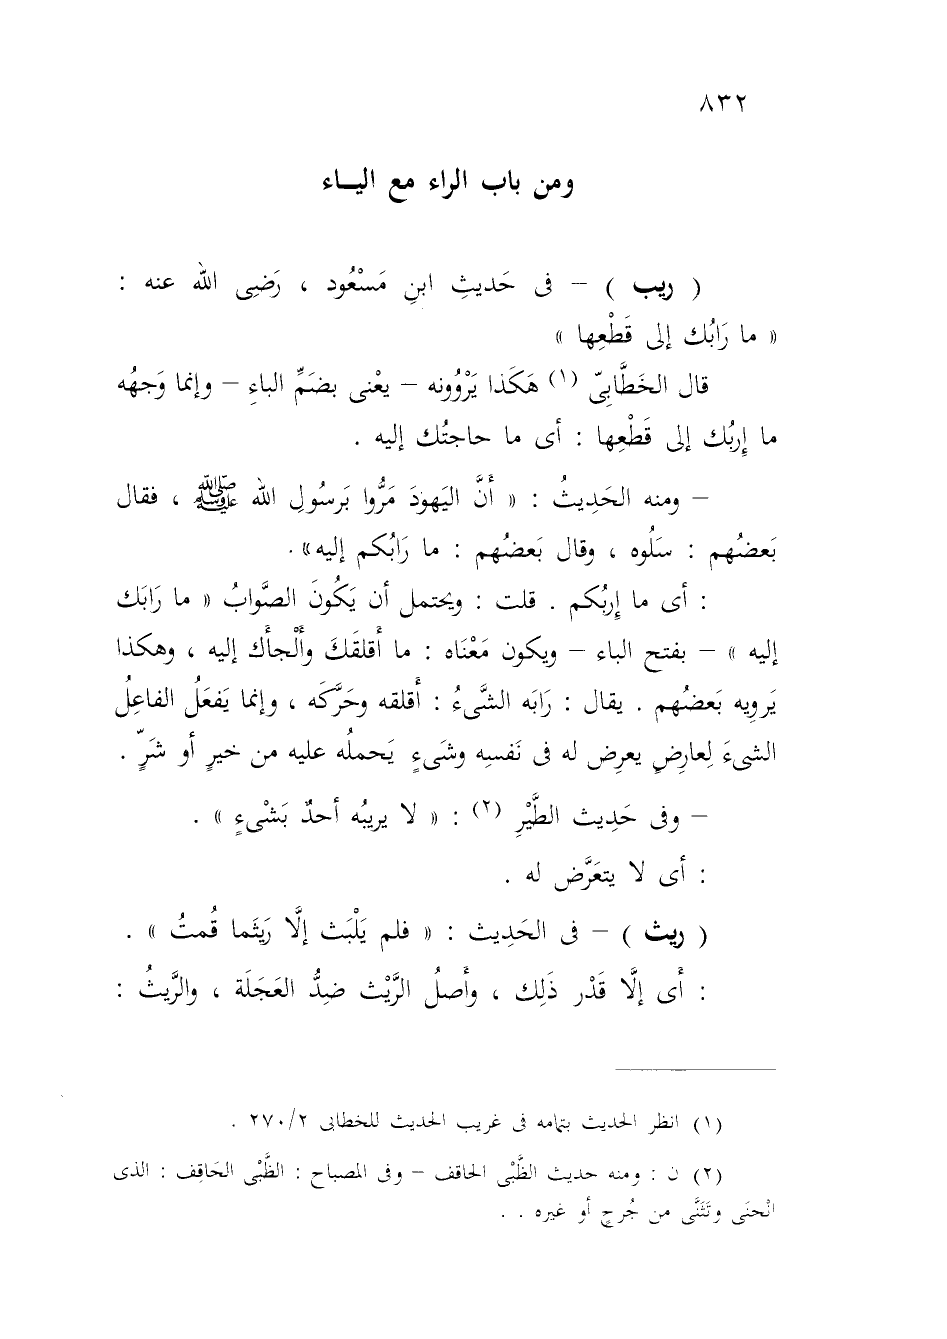 ٨٣٢
ومن باب الراء مع اليـاء
( ريب ) – فى حَديثِ ابنِ مَسْعُود ، رَضِى اللهُ عنه :
« ما رَابُك إلى قَطْعِها »
قال الخَطَّابِىّ (١) هَكَذا يَرْوُونه – يعْنى بضَمِّ الباءِ – وإنما وَجهُه
ما إِربُك إلى قَطْعِها : أى ما حاجتُك إليه .
– ومنه الحَدِيثُ : « أَنَّ اليَهودَ مَرُّوا بَرسُولِ الله ﷺ ، فقال
بَعضُهم : سَلُوه ، وقال بَعضُهم : ما رَابُكم إليه» .
: أى ما إِربُكم . قلت : ويحتمل أن يَكُونَ الصَّوابُ « ما رَابَك
إليه » – بفتح الباء – ويكون مَعْنَاه : ما أَقلقَكَ وأَلْجأَك إليه ، وهكذا
يَرويه بَعضُهم . يقال : رَابَه الشَّىءُ : أَقلقه وحَرَّكَه ، وإنما يَفعَلُ الفاعِلُ
الشىءَ لِعارِضٍ يعرِض له فى نَفسِه وشَىءٍ يَحملُه عليه من خيرٍ أو شَرٍّ .
– وفى حَدِيث الطَّيْرِ (٢) : « لا يريبُه أحدٌ بَشْىءٍ » .
: أى لا يتعَرَّض له .
( ريث ) – فى الحَدِيث : « فلم يَلْبَث إلَّا رَيَثَما قُمتُ » .
: أَى إلَّا قَدْر ذَلِك ، وأَصلُ الرَّيْث ضِدُّ العَجَلَة ، والرَّيثُ :
(١) انظر الحديث بتمامه فى غريب الحديث للخطابى ٢٧٠/٢ .
(٢) ن : ومنه حديث الظَّبْى الحاقف – وفى المصباح : الظَّبْى الحَاقِف : الذى
انْحنَى وتَثَنَّى من جُرحٍ أو غيره . .